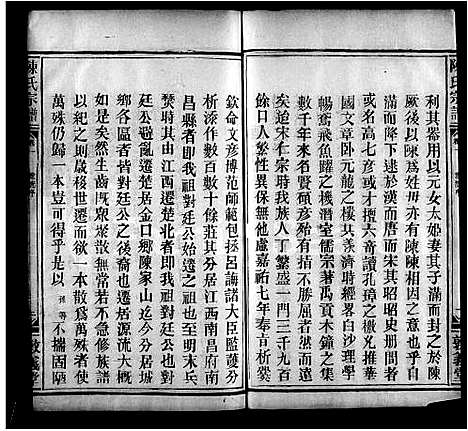 陳氏宗譜
利其器用以元女太姬妻其子滿而封之於陳
厥後以陳爲姓毌亦有陳陳相因之意也乎自
滿而降下逮於漢而唐而宋其昭昭史册間者
或名高七彥或才擅六奇讀孔璋之檄兄推美
國文章卧元龍之樓共羨濟時經畧白沙理學
暢鴛飛魚躍之機潛室儒宗著禹貢木鐘之集
數千年來彥俊之挺生指不勝屈者然而遠
矣迨宋仁宗時我族人丁繁盛一門三千九百
餘口人繁性異保無他慮嘉祐七年奉旨析爨
敦義堂
欽命文彥博范師範包拯呂誨諸大臣監護分
析漆作數百數十餘莊其分居江西南昌府南
昌縣者即我祖對廷公始遷之祖也至明末兵
燹時其由江西遷楚北者即我祖對廷公與
廷公避亂遷楚居金口鄉陳家山迄今分居城
鄉各區者皆對廷公之後裔也遷居源流大畧
如是矣然生齒既眾聚散無常若不急修族譜
以紀之則歲移世遷何以令一本散爲萬殊者使
萬殊仍歸一本豈可得乎是以 孫等 不揣固陋
陳氏宗譜
敦義堂